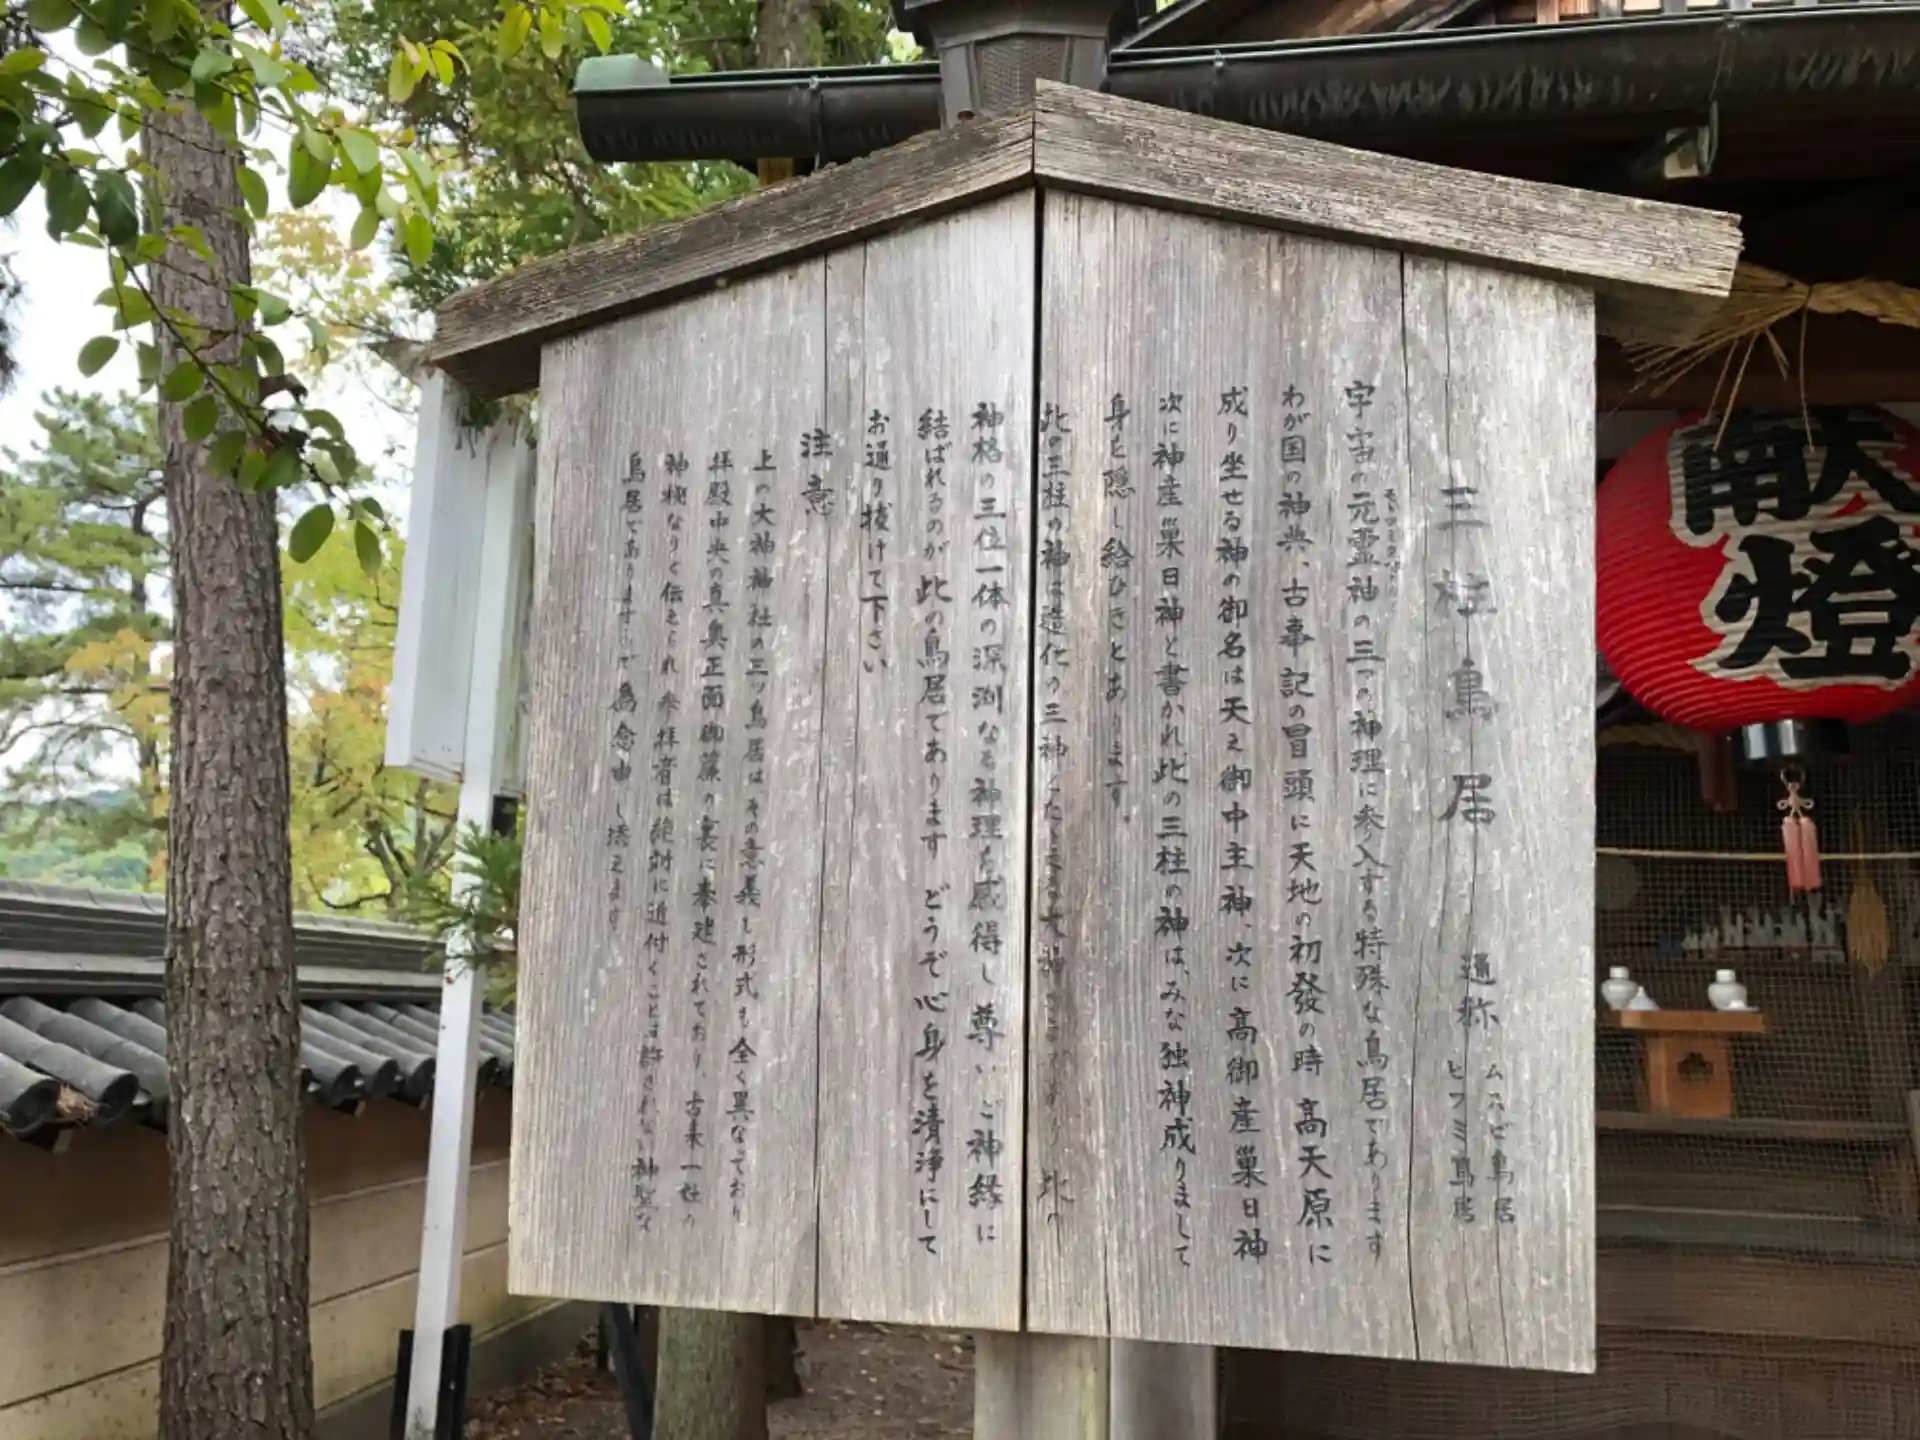 三柱鳥居 通称 ムスビ鳥居
ヒフミ鳥居
宇宙の元霊神の三つの神理に参入する特殊な鳥居であります
わが国の神典、古事記の冒頭に天地の初發の時 高天原に
成り坐せる神の御名は天之御中主神、次に高御産巣日神
次に神産巣日神と書かれ此の三柱の神は、みな独神成りまして
身を隠し給ひきとあります。
此の三柱の神は造化の三神 此の
神格の三位一体の深渕なる神理を感得し尊いご神縁に
結ばれるのが此の鳥居であります どうぞ心身を清浄にして
お通り抜けて下さい
注意
上の大神神社の三ッ鳥居は その意義も形式も全く異なっており
拝殿中央の真奥正面御簾の裏に奉建されており、古来一社の
神秘なりと伝えられ 参拝者は絶対に近付くことは許されない神聖な
鳥居でありますので為念申し添えます
献燈